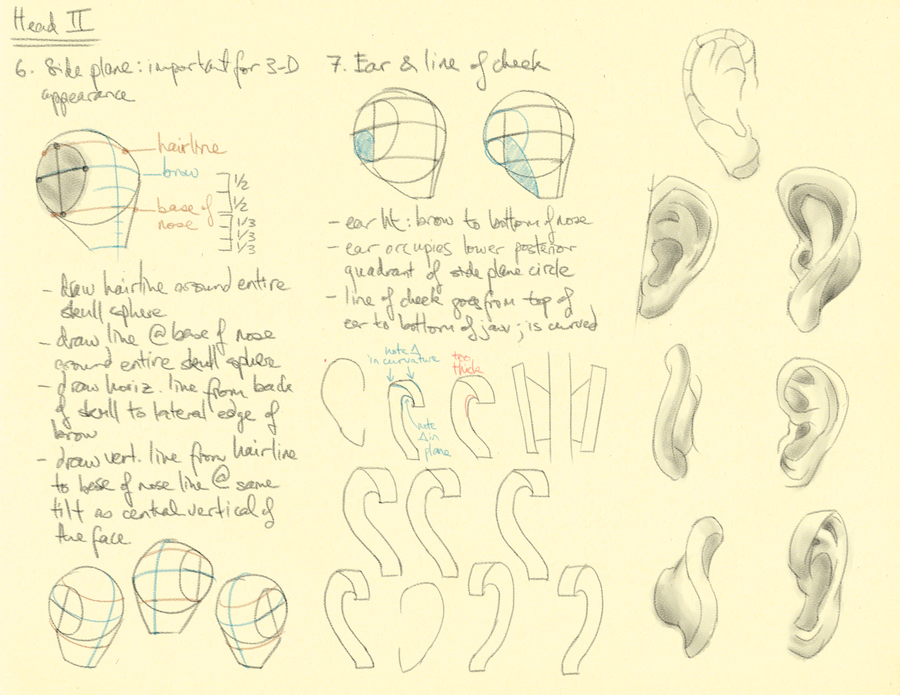 Head II
6. Side plane: important for 3-D
appearance
hairline
brow
base of
nose
1/2
1/2
1/3
1/3
1/3
- draw hairline around entire
skull sphere
- draw line @ base of nose
around entire skull sphere
- draw horiz. line from back
of skull to lateral edge of
brow
- draw vert. line from hairline
to base of nose line @ same
tilt as central vertical of
the face
7. Ear & line of cheek
- ear ht: brow to bottom of nose
- ear occupies lower posterior
quadrant of side plane circle
- line of cheek goes from top of
ear to bottom of jaw; is curved
note Δ
in curvature
too
thick
note
Δ in
plane